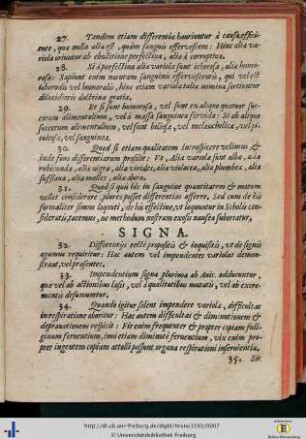 27. Tandem etiam differentia hauriuntur à causa efficiente,
que nulla alia est, quàm sanguis effervescens: Hinc aliæ variolæ
oriuntur ab ebullitione perfectiua, aliæ à corruptiua.
28. Si à perfectiua aliæ variolæ sunt ichorosa, aliæ humorosa:
Sapiunt enim naturam sanguinis effervescentis, qui vel est
ichoroidis vel humoralis, hinc etiam variola talia nomina sortiuntur
dilucidioris doctrinæ gratia.
29. Et si sunt humorosa, vel sunt ex aliquo quatuor succorum
alimentalium, vel à massa sanguinea fervida: Si ab aliquo
succorum alimentalium, vel sunt biliosa, vel melancholica, vel pituitosa,
vel sanguinea.
30. Quod si etiam qualitatem introspicere velimus &
inde suas differentiarum prosilit: Ut, Alia variola sunt alba, alia
rubicunda, alia nigra, alia virides, alia violacea, alia plumbea, alia
suffulta, alia molles, alia dura.
31. Quod si quis hic in sanguine quantitatem & motum
vellet considerare, plures posset differentias afferre, Sed cum de his
formaliter simus loquuti, de his effective, ut loquuntur in Scholis
consideratis, tacemus, ne methodum nostram exosis nausea suboriatur,
SIGNA.
32. Differentijs rectè propositis & inquisitis, ut de signis
agamus requiritur: Hac autem vel impendentes variolas demonstrant,
vel præsentes.
33. Impendentium signa plurima ab Auic. adducuntur,
quæ vel ab actionibus læsis, vel à qualitatibus mutatis, vel ab excrementis
desumuntur.
34. Quando igitur solent impendere variola, difficultas
in respiratione oboritur: Hac autem difficultas & diminutionem &
depravationem respicit: Fit enim frequenter & propter copiam fuliginum
ferventium, imò etiam diminutè ferventium, vix enim propter
ingentem copiam attolli possunt organa respirationi inservientia.
35. Sit
http://dl.ub.uni-freiburg.de/diglit/bruno1593/0007
© Universitätsbibliothek Freiburg